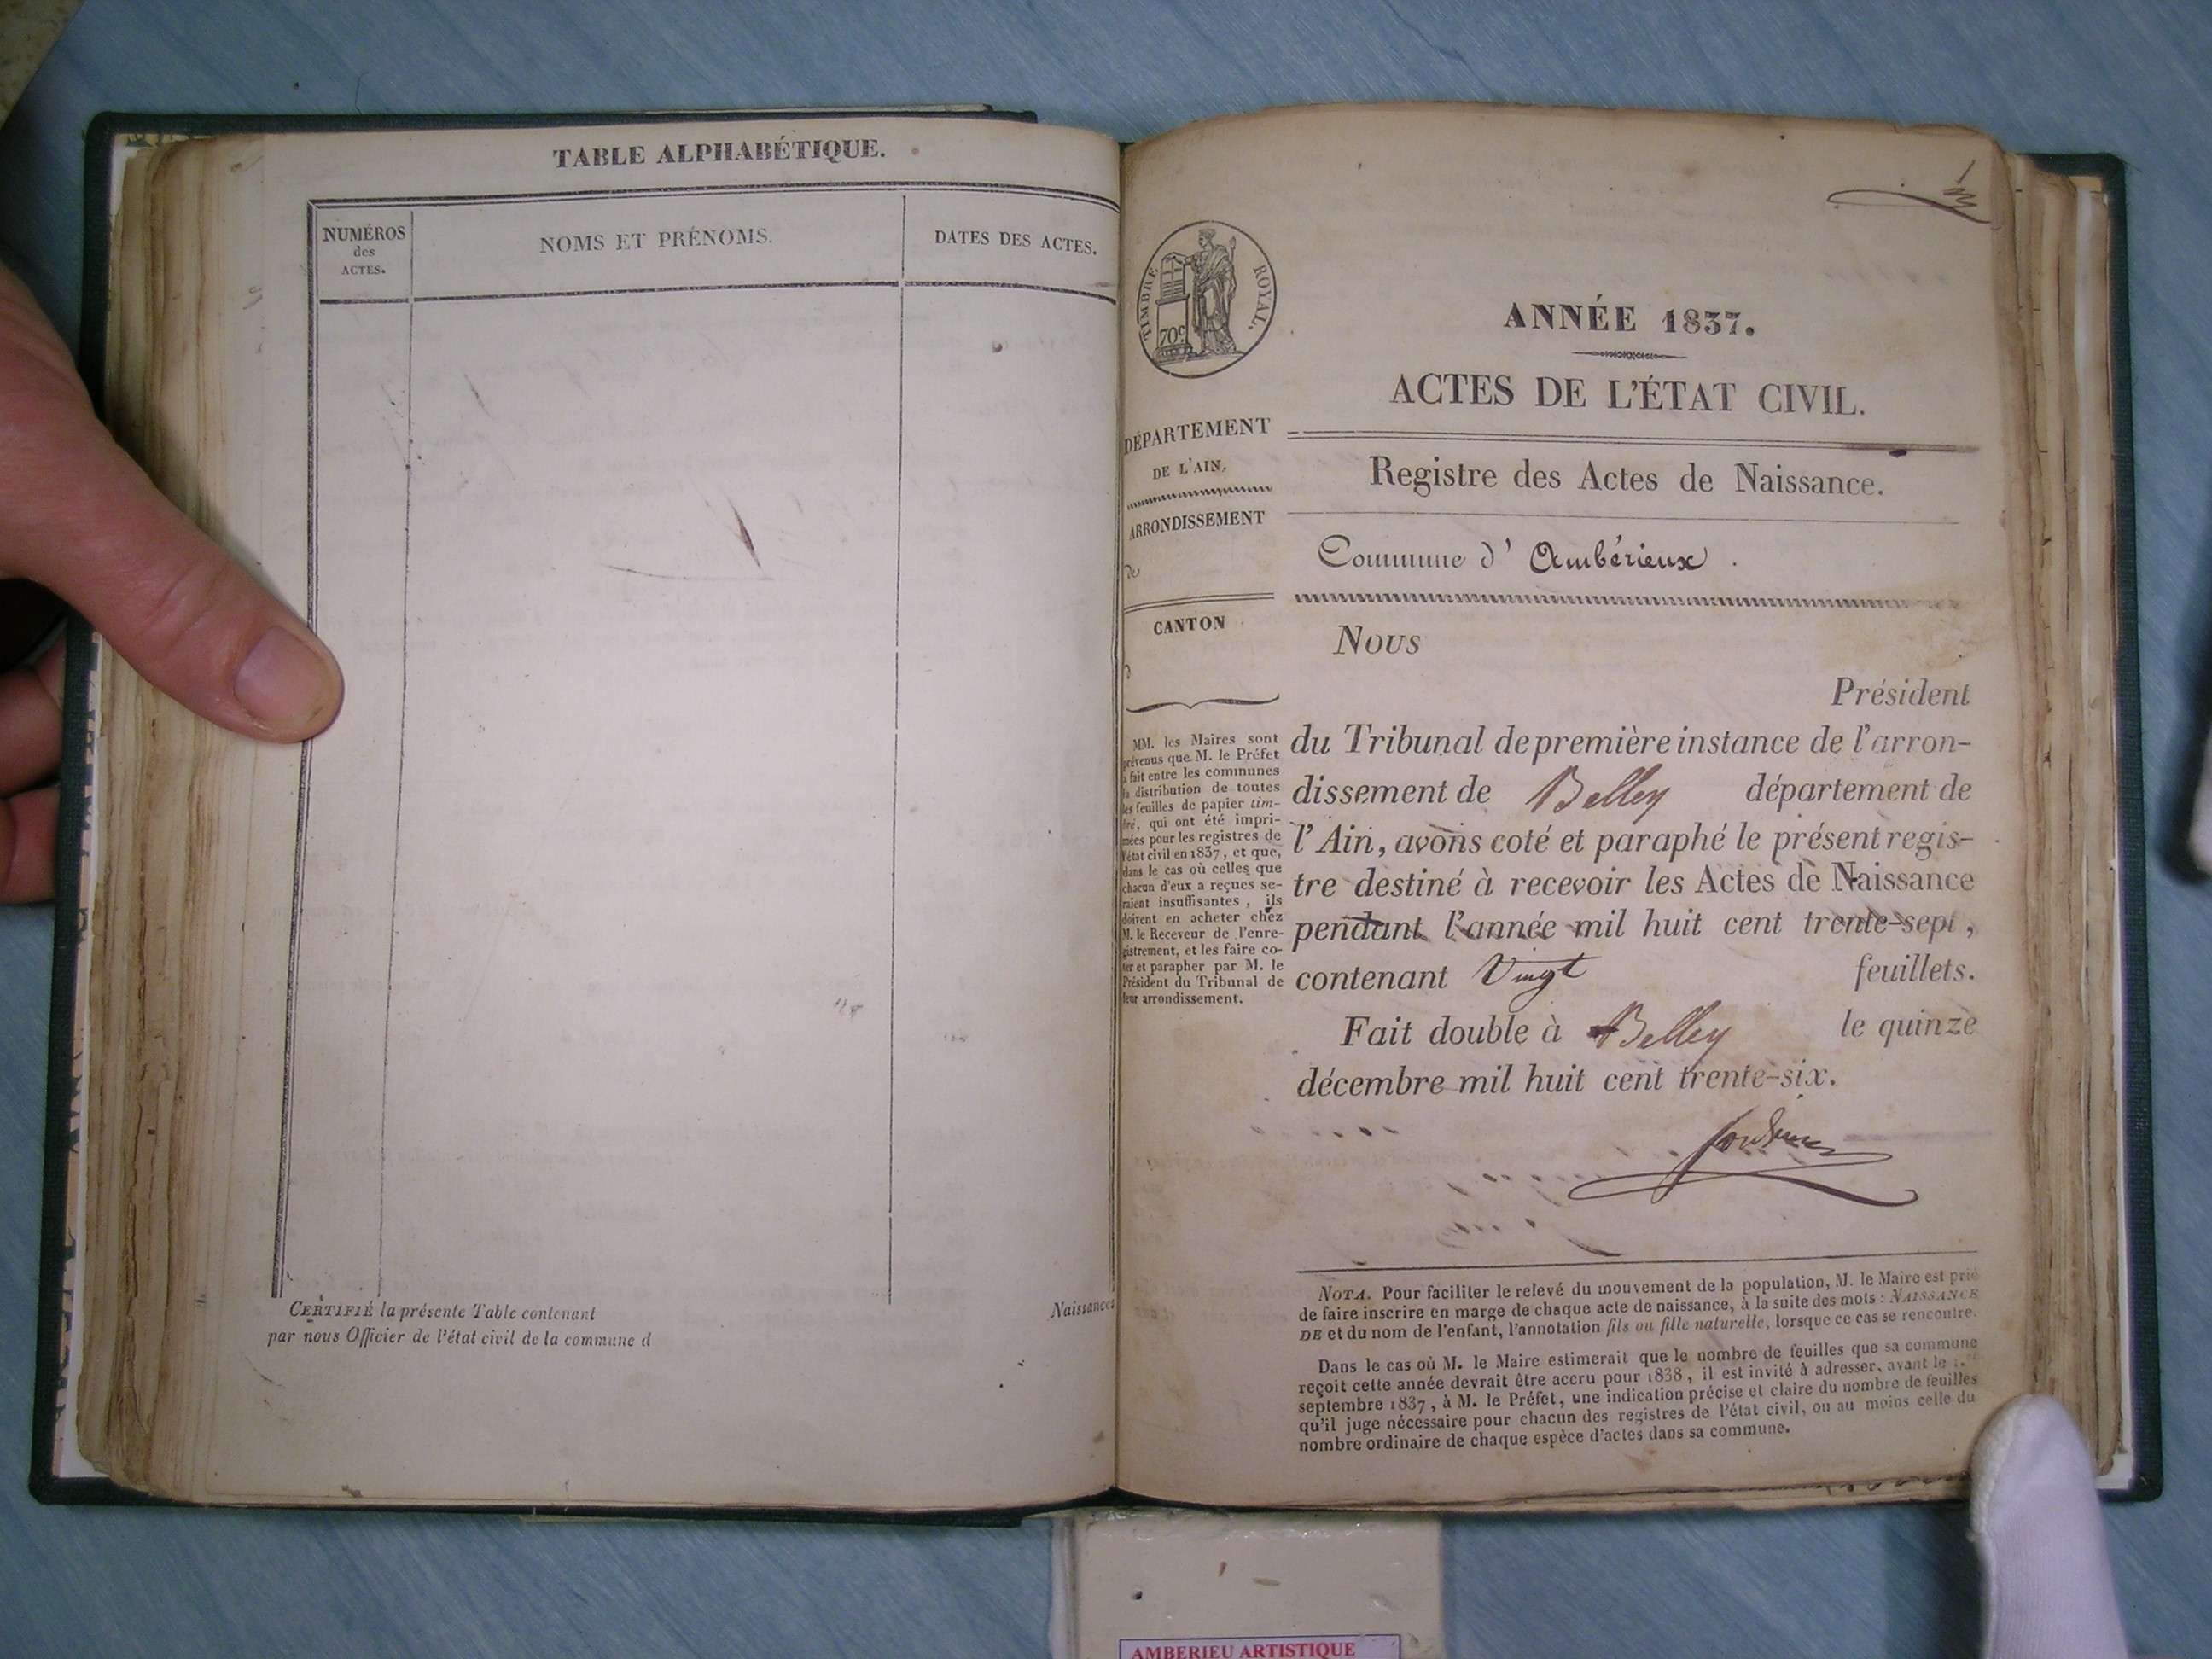 TABLE ALPHABÉTIQUE.
NUMÉROS
des
ACTES.
NOMS ET PRÉNOMS.
DATES DES ACTES.
CERTIFIÉ la présente Table contenant Naissances
par nous Officier de l'état civil de la commune d
TIMBRE ROYAL.
70c
DÉPARTEMENT
DE L'AIN,
ARRONDISSEMENT
de
CANTON
d
MM. les Maires sont
prévenus que M. le Préfet
a fait entre les communes
la distribution de toutes
les feuilles de papier tim-
bré, qui ont été impri-
mées pour les registres de
l'état civil en 1837, et que,
dans le cas où celles que
chacun d'eux a reçues se-
raient insuffisantes, ils
doivent en acheter chez
M. le Receveur de l'enre-
gistrement, et les faire co-
ter et parapher par M. le
Président du Tribunal de
leur arrondissement.
ANNÉE 1837.
ACTES DE L'ÉTAT CIVIL.
Registre des Actes de Naissance.
Commune d' Ambérieux.
Nous
Président
du Tribunal de première instance de l'arron-
dissement de Belley département de
l'Ain, avons coté et paraphé le présent regis-
tre destiné à recevoir les Actes de Naissance
pendant l'année mil huit cent trente-sept,
contenant Vingt feuillets.
Fait double à Belley le quinze
décembre mil huit cent trente-six.
NOTA. Pour faciliter le relevé du mouvement de la population, M. le Maire est prié
de faire inscrire en marge de chaque acte de naissance, à la suite des mots : NAISSANCE
DE et du nom de l'enfant, l'annotation fils ou fille naturelle, lorsque ce cas se rencontre.
Dans le cas où M. le Maire estimerait que le nombre de feuilles que sa commune
reçoit cette année devrait être accru pour 1838, il est invité à adresser, avant le 1.er
septembre 1837, à M. le Préfet, une indication précise et claire du nombre de feuilles
qu'il juge nécessaire pour chacun des registres de l'état civil, ou au moins celle du
nombre ordinaire de chaque espèce d'actes dans sa commune.
AMBERIEU ARTISTIQUE